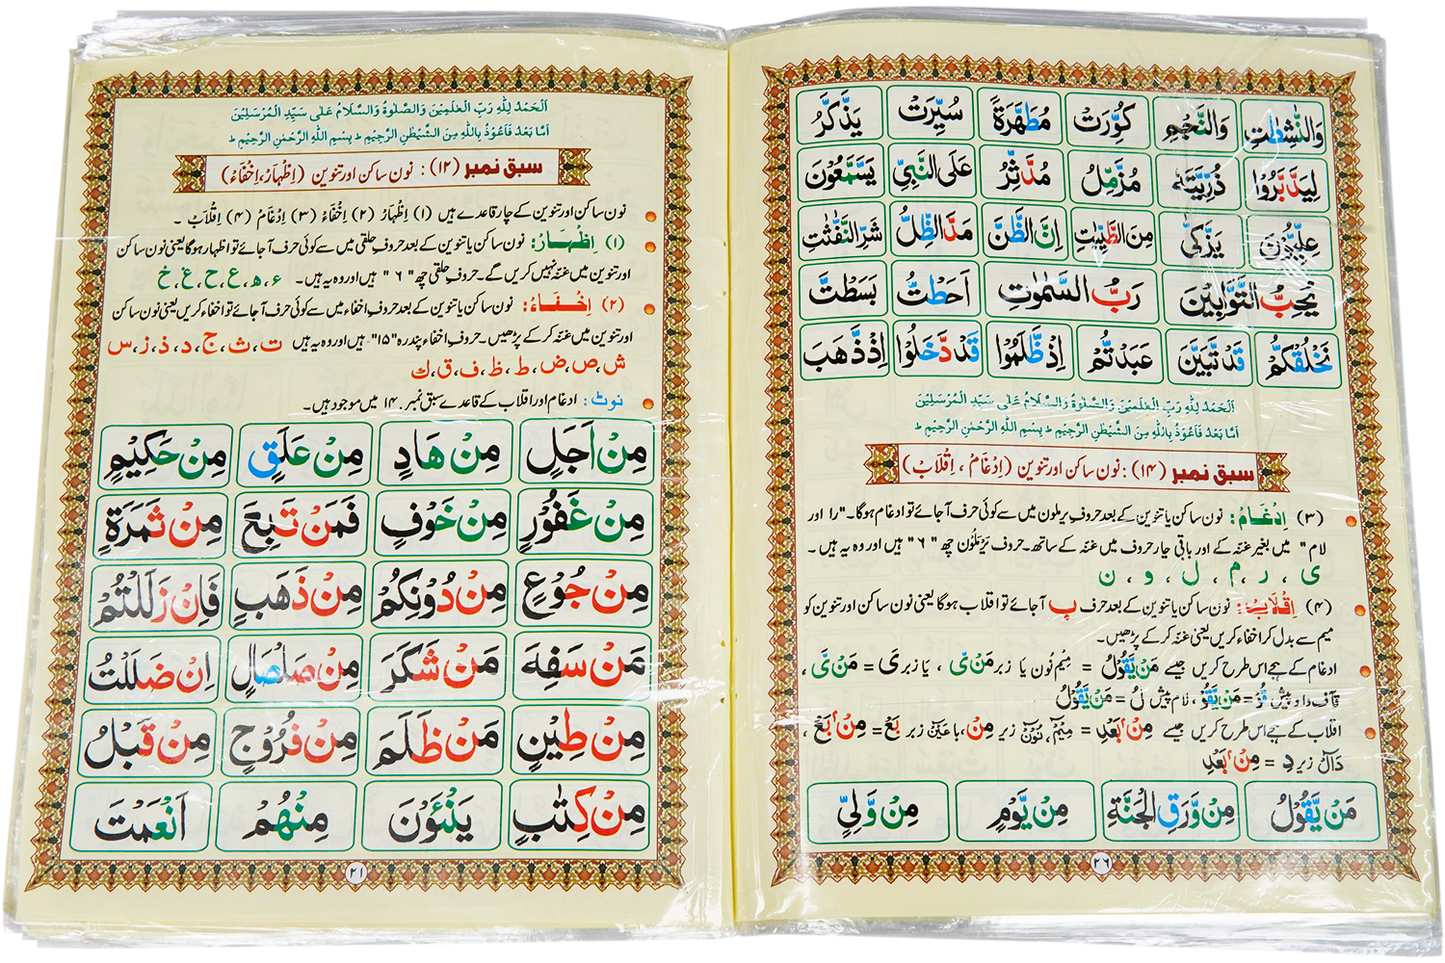 وَالنّٰشِطٰتِ وَالنَّجْمِ كُوِّرَتْ مُطَهَّرَةً سُيِّرَتْ يَذَّكَّرُ
لِيَدَّبَّرُوْا ذُرِّيَّتَهٗ مُزَّمِّلُ مُدَّثِّرُ عَلَى النَّبِيِّ يَسَّمَّعُوْنَ
عِلِّيُّوْنَ يَزَّكّٰى مِنَ الطَّيِّبٰتِ اِنَّ الظَّنَّ مَدَّ الظِّلَّ شَرِّ النَّفّٰثٰتِ
يُحِبُّ التَّوَّابِيْنَ رَبُّ السَّمٰوٰتِ اَحَطْتُّ بَسَطْتَّ
نَخْلُقْكُّمْ قَدْ تَّبَيَّنَ عَبَدْتُّمْ اِذْ ظَّلَمُوْا قَدْ دَّخَلُوْا اِذْ ذَّهَبَ
اَلْحَمْدُ لِلّٰهِ رَبِّ الْعٰلَمِيْنَ وَالصَّلٰوةُ وَالسَّلَامُ عَلٰى سَيِّدِ الْمُرْسَلِيْنَ
اَمَّا بَعْدُ فَاَعُوْذُ بِاللّٰهِ مِنَ الشَّيْطٰنِ الرَّجِيْمِ ط بِسْمِ اللّٰهِ الرَّحْمٰنِ الرَّحِيْمِ ط
سبق نمبر (۱۴) : نون ساکن اور تنوین (اِدْغَامْ ، اِقْلَابْ)
(۳) اِدْغَامْ : نون ساکن یا تنوین کے بعد حروفِ یرملون میں سے کوئی حرف آجائے تو ادغام ہوگا۔ "را اور
لام" میں بغیر غنّہ کے اور باقی چار حروف میں غنّہ کے ساتھ۔ حروفِ یَرْمَلُوْن چھ "۶" ہیں اور وہ یہ ہیں۔
ی ، ر ، م ، ل ، و ، ن
(۴) اِقْلَابْ : نون ساکن یا تنوین کے بعد حرف ب آجائے تو اقلاب ہوگا یعنی نون ساکن اور تنوین کو
میم سے بدل کر اخفاء کریں یعنی غنّہ کر کے پڑھیں۔
ادغام کے ہجے اس طرح کریں جیسے مَنْ يَّقُوْلُ = مِیْم نُون یا زبر مَنْ یَّ ، یَا زبر یَ = مَنْ یَّ ،
قَاف وَاو پیش قُوْ = مَنْ يَّقُوْ ، لَام پیش لُ = مَنْ يَّقُوْلُ
اقلاب کے ہجے اس طرح کریں جیسے مِنْۢ بَعْدِ = مِیْمْ، نُوْنْ زیر مِنْ، باعَیْنْ زبر بَعْ = مِنْۢ بَعْ ،
دَالْ زیر دِ = مِنْۢ بَعْدِ
مَنْ يَّقُوْلُ مِنْ وَّرَقِ الْجَنَّةِ مِنْ يَّوْمٍ مِنْ وَّلِيٍّ
۲۶
اَلْحَمْدُ لِلّٰهِ رَبِّ الْعٰلَمِيْنَ وَالصَّلٰوةُ وَالسَّلَامُ عَلٰى سَيِّدِ الْمُرْسَلِيْنَ
اَمَّا بَعْدُ فَاَعُوْذُ بِاللّٰهِ مِنَ الشَّيْطٰنِ الرَّجِيْمِ ط بِسْمِ اللّٰهِ الرَّحْمٰنِ الرَّحِيْمِ ط
سبق نمبر (۱۲) : نون ساکن اور تنوین (اِظْہَارْ، اِخْفَاءْ)
نون ساکن اور تنوین کے چار قاعدے ہیں (۱) اِظْہَارْ (۲) اِخْفَاءْ (۳) اِدْغَامْ (۴) اِقْلَابْ۔
(۱) اِظْہَارْ : نون ساکن یا تنوین کے بعد حروفِ حلقی میں سے کوئی حرف آجائے تو اظہار ہوگا یعنی نون ساکن
اور تنوین میں غنّہ نہیں کریں گے۔ حروفِ حلقی چھ "۶" ہیں اور وہ یہ ہیں۔ ء ، ہ ، ع ، ح ، غ ، خ
(۲) اِخْفَاءْ : نون ساکن یا تنوین کے بعد حروفِ اخفاء میں سے کوئی حرف آجائے تو اخفاء کریں یعنی نون ساکن
اور تنوین میں غنّہ کر کے پڑھیں۔ حروفِ اخفاء پندرہ "۱۵" ہیں اور وہ یہ ہیں ت ، ث ، ج ، د ، ذ ، ز ، س
ش ، ص ، ض ، ط ، ظ ، ف ، ق ، ك
نوٹ : ادغام اور اقلاب کے قاعدے سبق نمبر ۱۴ میں موجود ہیں۔
مِنْ اَجَلٍ مِنْ هَادٍ مِنْ عَلَقٍ مِنْ حَكِيْمٍ
مِنْ غَفُوْرٍ مِنْ خَوْفٍ فَمَنْ تَبِعَ مِنْ ثَمَرَةٍ
مِنْ جُوْعٍ مِنْ دُوْنِكُمْ مِنْ ذَهَبٍ فَاِنْ زَلَلْتُمْ
مَنْ سَفِهَ مَنْ شَكَرَ مِنْ صَلْصَالٍ اِنْ ضَلَلْتُ
مِنْ طِيْنٍ مَنْ ظَلَمَ مِنْ فُرُوْجٍ مِنْ قَبْلُ
مِنْ كِتٰبٍ يَنْـَٔوْنَ مِنْهُمْ اَنْعَمْتَ
۲۱